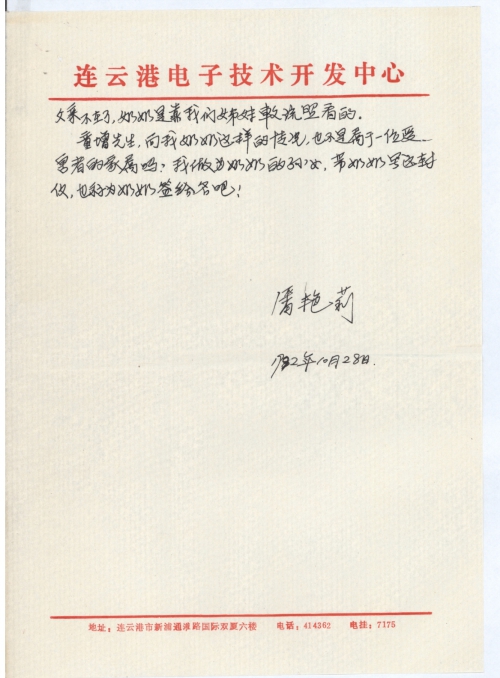 连云港电子技术开发中心
不在了,奶奶是靠我们姊妹轮流照看的.
童增先生,向我奶奶这样的情况,也不是属于一位受
害者的家属吗?我做为奶奶的孙女,带奶奶写这封
仪,也称为奶奶签给名吧!
潘艳莉
年10月28日.
地址:连云港市新浦通灌路国际双厦六楼 电话:414362 电挂:7175